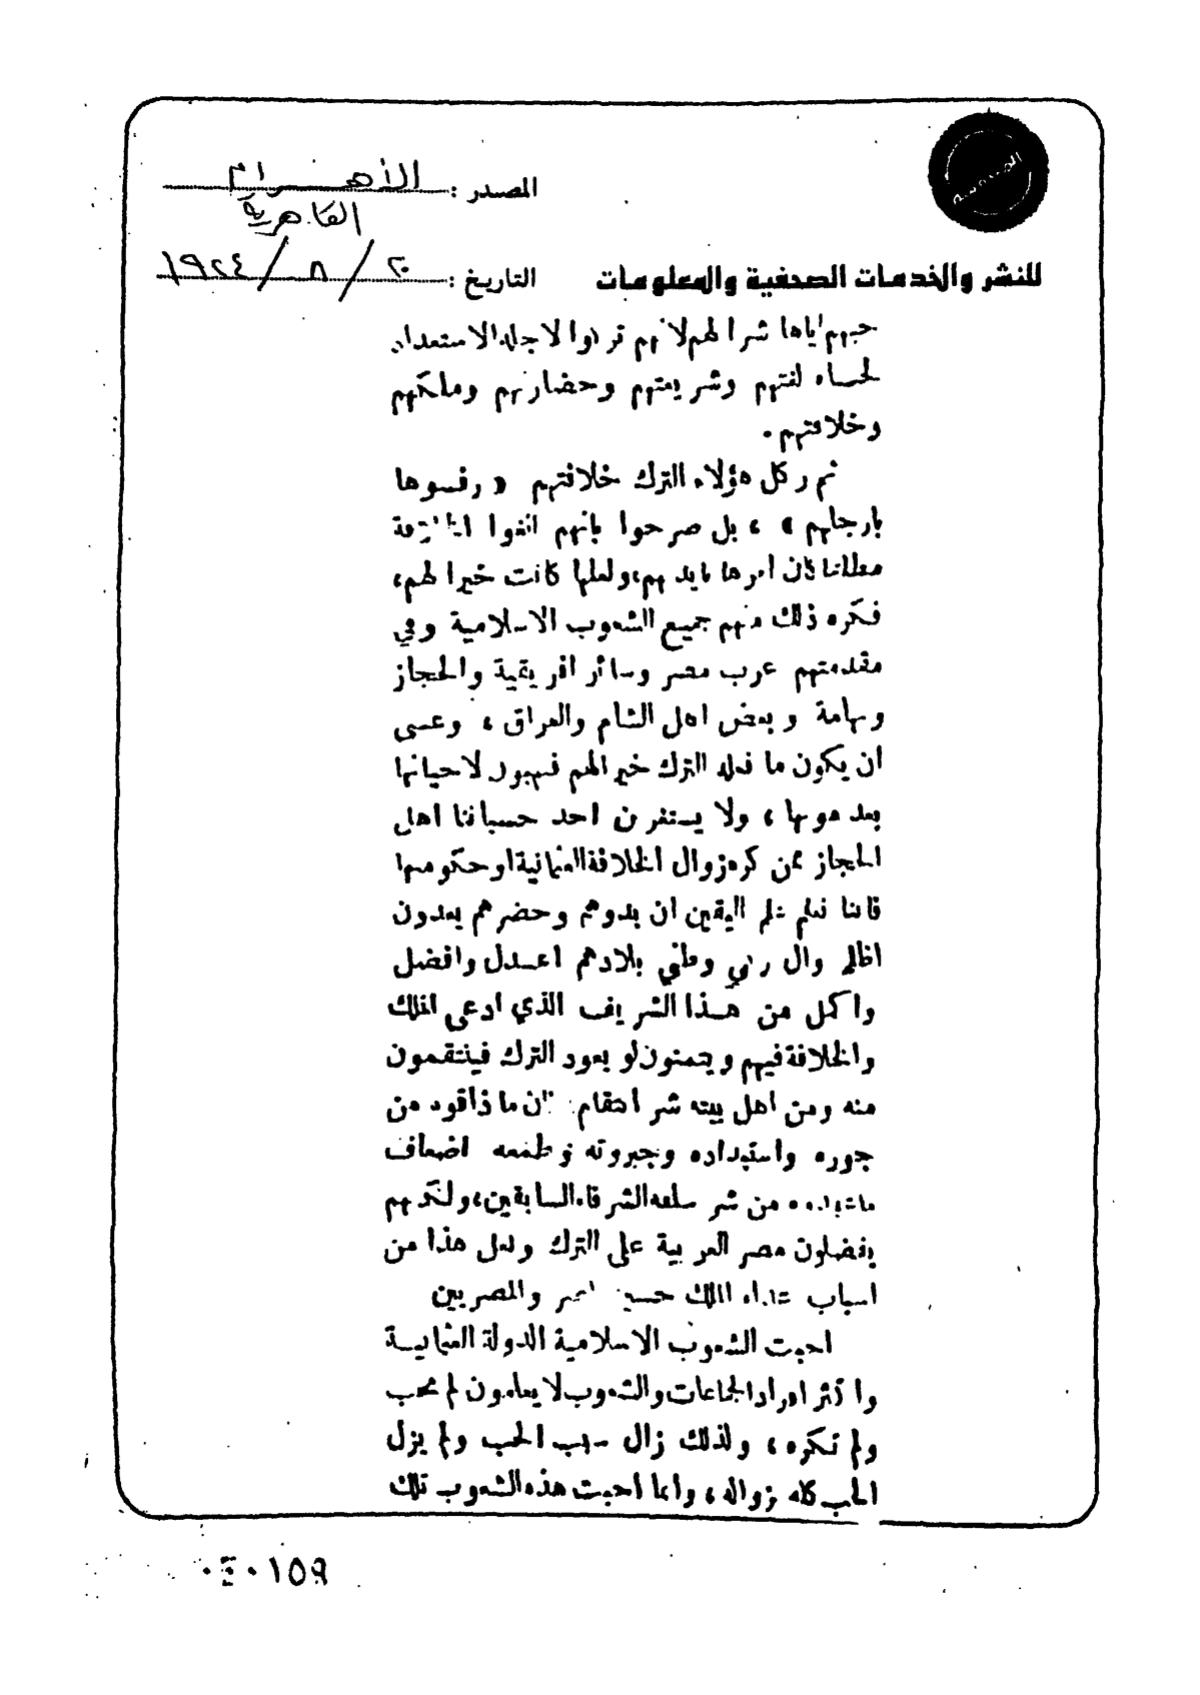 المصدر : الأهرام
القاهرية
للنشر والخدمات الصحفية والمعلومات
التاريخ : ٢٠ / ٨ / ١٩٢٤
حبهم اياها شرا لهم لانهم لاجله الاستعداد
لغتهم وشريعتهم وحضارتهم وملكهم
وخلافتهم .
ثم ركل هؤلاء الترك خلافتهم « رفسوها
بارجلهم » ، بل صرحوا بانهم الغوا
مطلقا بايديهم ، ولعلها كانت خيرا لهم ،
فكره ذلك منهم جميع الشعوب الاسلامية وفي
مقدمتهم عرب مصر وسائر افريقية والحجاز
وتهامة وبعض اهل الشام والعراق ، وعسى
ان يكون ما فعله الترك خيرا لهم لاحيائها
بعد موتها ، ولا يستغربن احد حسباننا اهل
الحجاز ممن كره زوال الخلافة العثمانية او حكومتها
فاننا نعلم علم اليقين ان بدوهم وحضرهم يعدون
اظلم وال تركي وطئ بلادهم اعدل وافضل
واكمل من هذا الشريف الذي ادعى الملك
والخلافة فيهم ويتمنون لو يعود الترك فينتقمون
منه ومن اهل بيته شر انتقام لان ما ذاقوه من
جوره واستبداده وجبروته وطمعه اضعاف
من شر سلفه الشرفاء السابقين ، ولكنهم
يفضلون مصر العربية على الترك ولعل هذا من
اسباب عداء الملك حسين لمصر والمصريين
احبت الشعوب الاسلامية الدولة العثمانية
واكثر افراد الجماعات والشعوب لا يعلمون لم تحب
ولم تكره ، ولذلك زال سبب الحب ولم يزل
الحب كله بزواله ، وانما احبت هذه الشعوب تلك
٠٤٠١٥٩